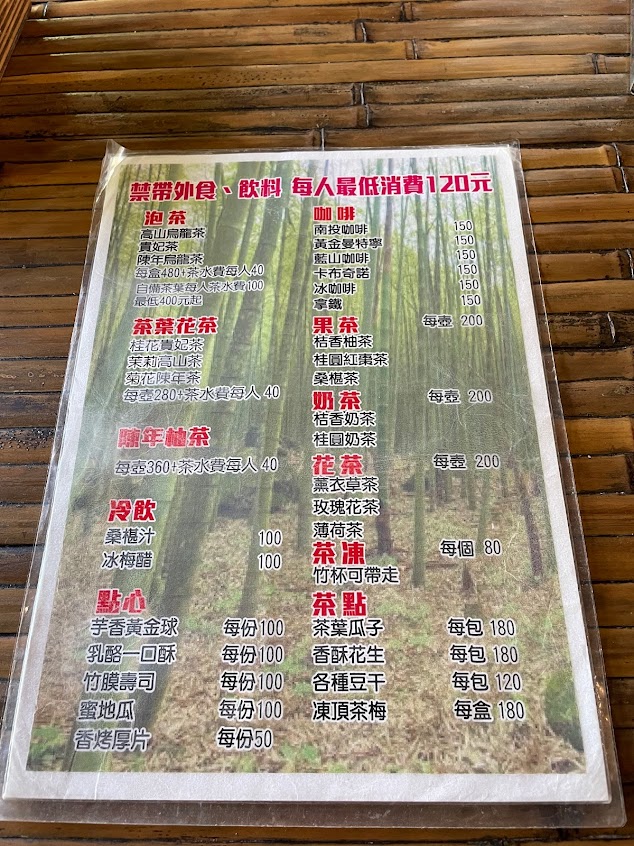 禁帶外食、飲料 每人最低消費120元
泡茶
高山烏龍茶
貴妃茶
陳年烏龍茶
每盒480+茶水費每人40
自備茶葉每人茶水費100
最低400元起
茶葉花茶
桂花貴妃茶
茉莉高山茶
菊花陳年茶
每壺280+茶水費每人 40
陳年柚茶
每壺360+茶水費每人 40
冷飲
桑椹汁 100
冰梅醋 100
點心
芋香黃金球 每份100
乳酪一口酥 每份100
竹膜壽司 每份100
蜜地瓜 每份100
香烤厚片 每份50
咖啡
南投咖啡 150
黃金曼特寧 150
藍山咖啡 150
卡布奇諾 150
冰咖啡 150
拿鐵 150
果茶 每壺 200
桔香柚茶
桂圓紅棗茶
桑椹茶
奶茶 每壺 200
桔香奶茶
桂圓奶茶
花茶 每壺 200
薰衣草茶
玫瑰花茶
薄荷茶
茶凍 每個 80
竹杯可帶走
茶點
茶葉瓜子 每包 180
香酥花生 每包 180
各種豆干 每包 120
凍頂茶梅 每盒 180